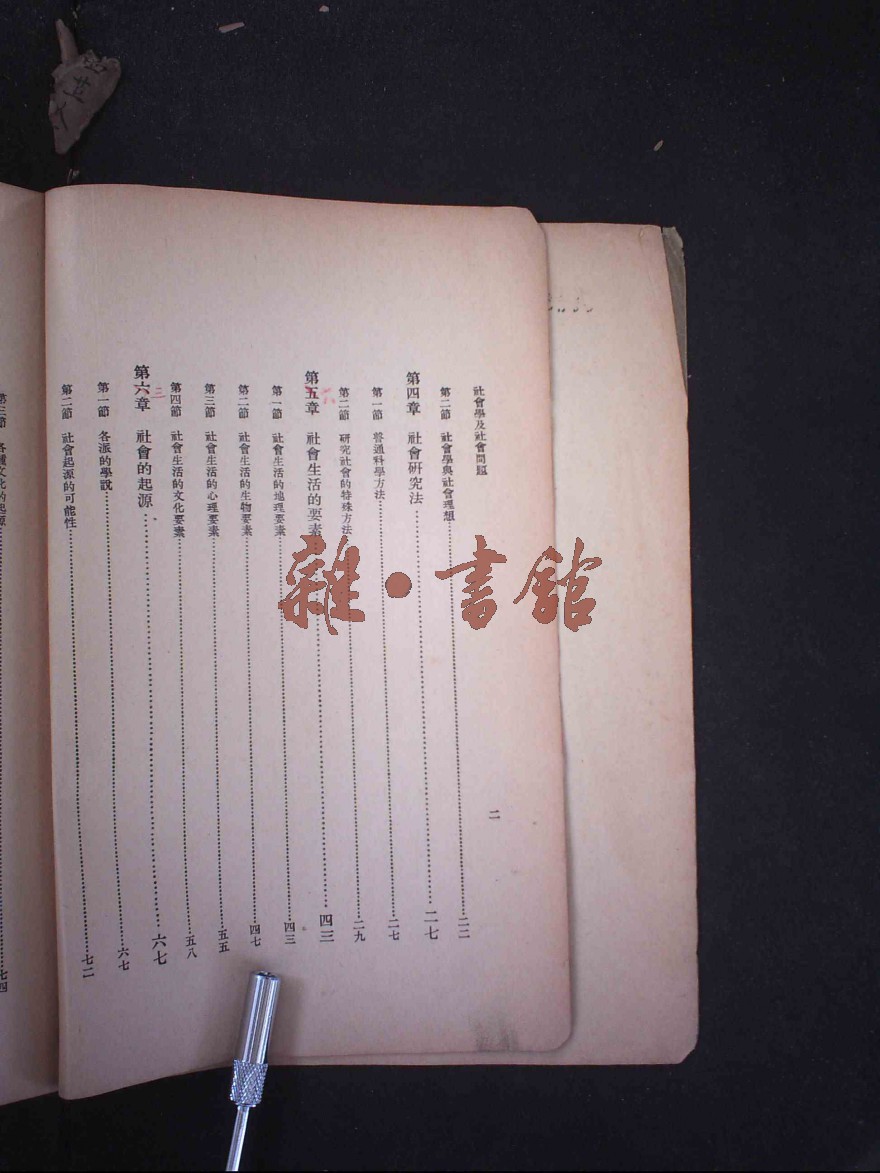 社會學及社會問題
二
第二節 社會學與社會理想 二二
第四章 社會研究法 二七
第一節 普通科學方法 二七
第二節 研究社會的特殊方法 二九
第五章 社會生活的要素 四三
第一節 社會生活的地理要素 四三
第二節 社會生活的生物要素 四七
第三節 社會生活的心理要素 五五
第四節 社會生活的文化要素 五八
第六章 社會的起源 六七
三
第一節 各派的學說 六七
第二節 社會起源的可能性 七二
第三節 各種文化的起源 七四
雜·書館